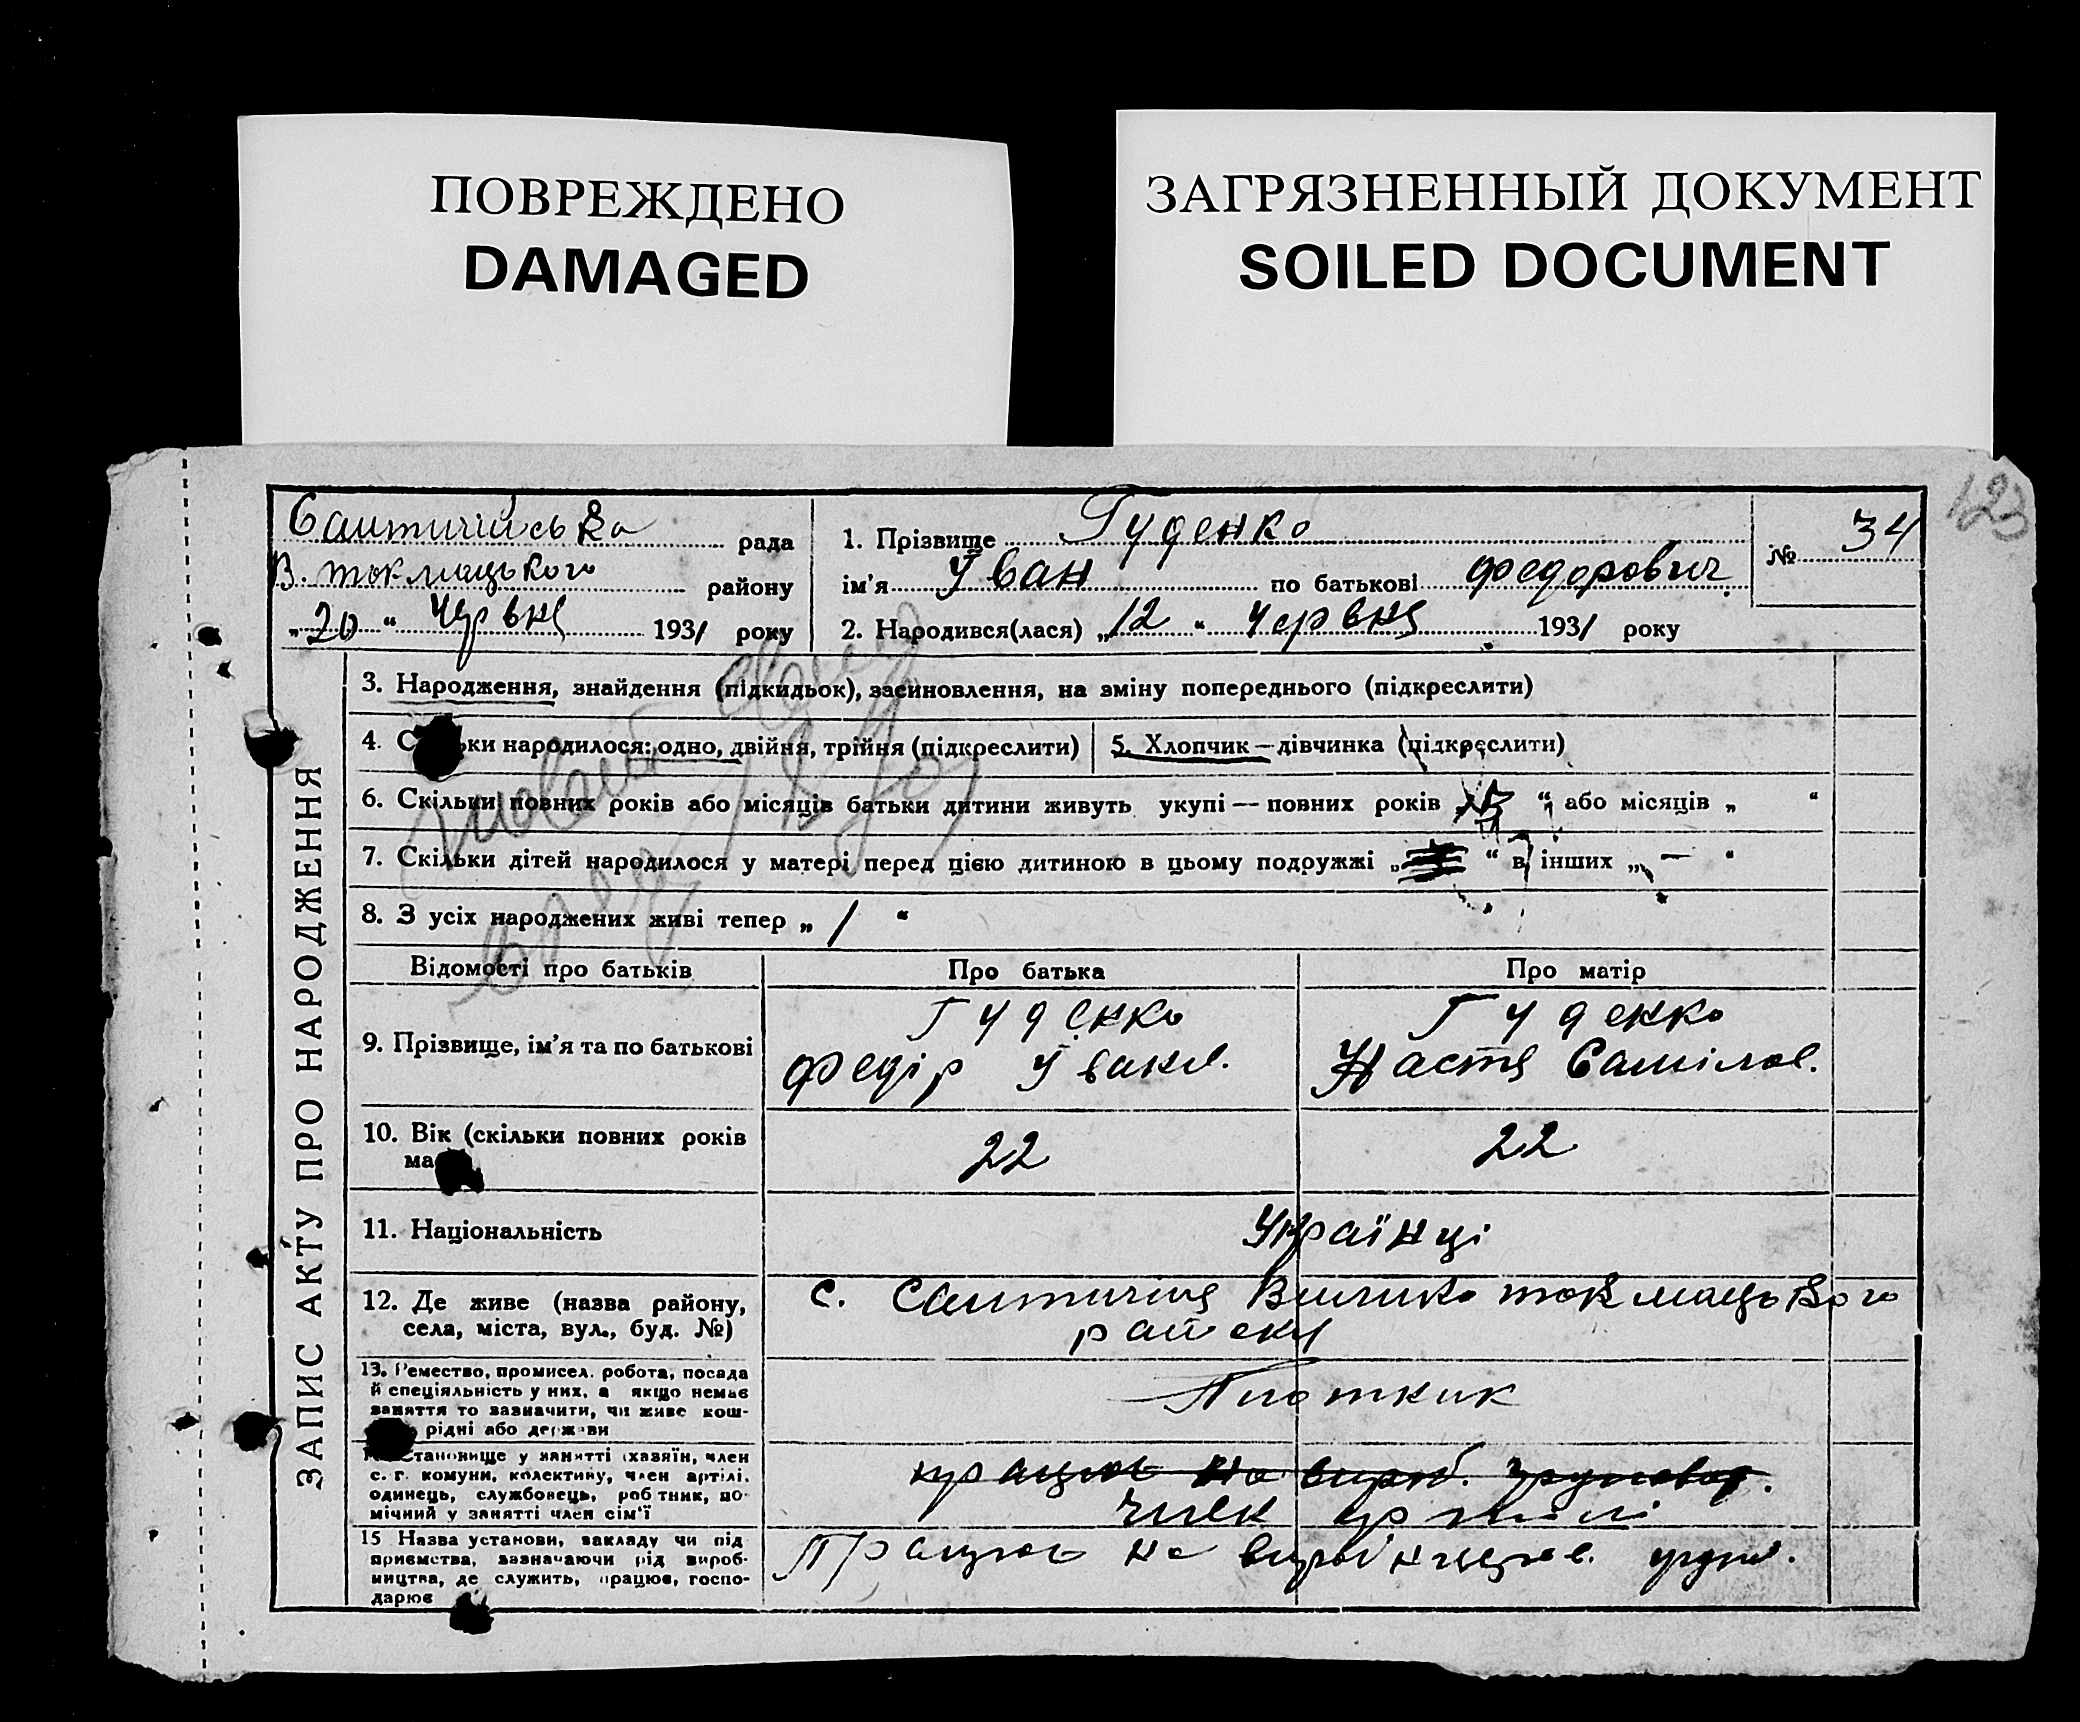 ПОВРЕЖДЕНО
DAMAGED
ЗАГРЯЗНЕННЫЙ ДОКУМЕНТ
SOILED DOCUMENT
123
рада
В. токмацького району
„20“ Червня 1931 року
1. Прізвище Гуденко
ім'я Іван по батькові Федорович
2. Народився(лася) „12“ Червня 1931 року
№ 34
ЗАПИС АКТУ ПРО НАРОДЖЕННЯ
3. Народження, знайдення (підкидьок), засиновлення, на зміну попереднього (підкреслити)
4. С ьки народилося: одно, двійня, трійня (підкреслити)
5. Хлопчик—дівчинка (підкреслити)
6. Скільки повних років або місяців батьки дитини живуть укупі — повних років „ “ або місяців „ “
7. Скільки дітей народилося у матері перед цією дитиною в цьому подружжі „ “ в інших „ — “
8. З усіх народжених живі тепер „ / “
Відомості про батьків
Про батька
Про матір
9. Прізвище, ім'я та по батькові
Гуденко
Федір Іванов.
Гуденко
Настя Самілов.
10. Вік (скільки повних років
ма
22
22
11. Національність
Українці
12. Де живе (назва району,
села, міста, вул., буд. №)
с. Велико токмацького
району
13. Ремество, промисел, робота, посада
й спеціяльність у них, а якщо немає
заняття то зазначити, чи живе кош-
рідні або держави
Плотник
Становище у занятті (хазяїн, член
с. г. комуни, колективу, член артілі,
одинець, службовець, робітник, по-
мічний у занятті член сім'ї
працює на
член артілі
15 Назва установи, закладу чи під
приємства, зазначаючи рід вироб-
ництва, де служить, працює, госпо-
дарює
Працює на